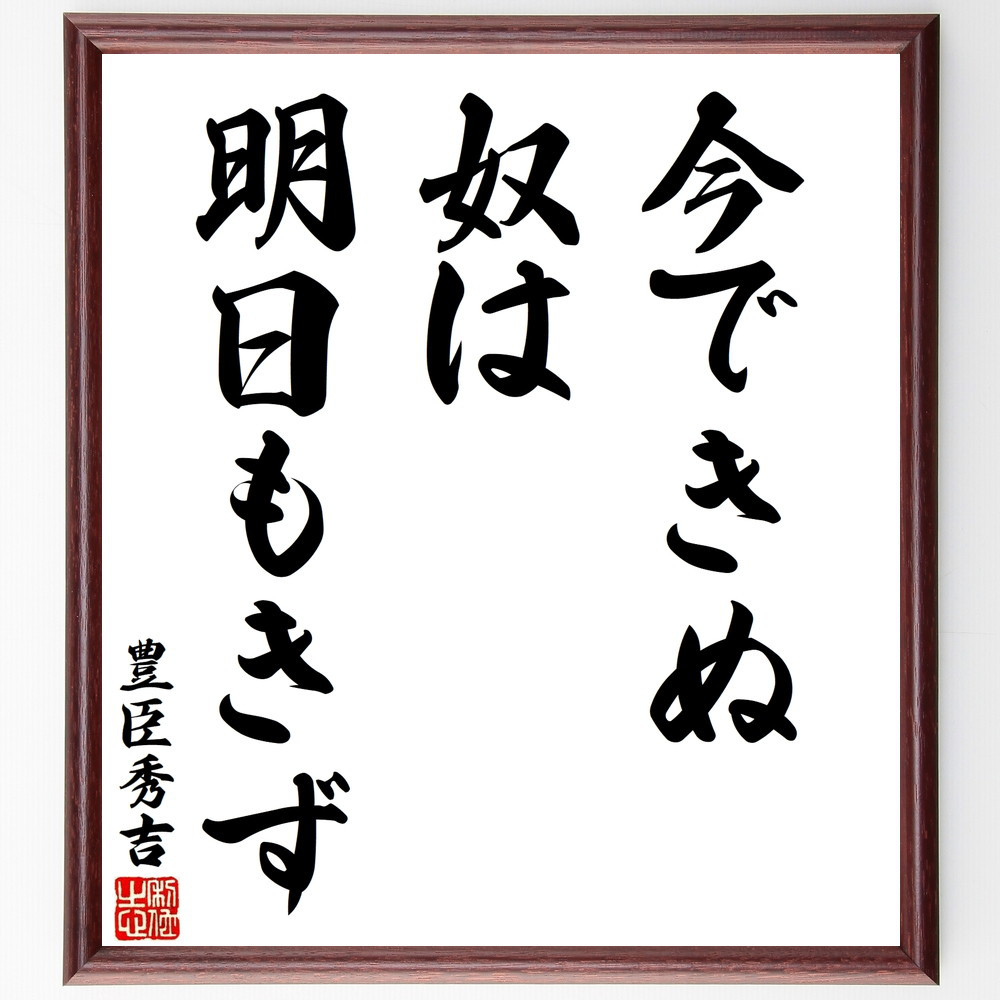 今できぬ
奴は
明日もきず
豊臣秀吉